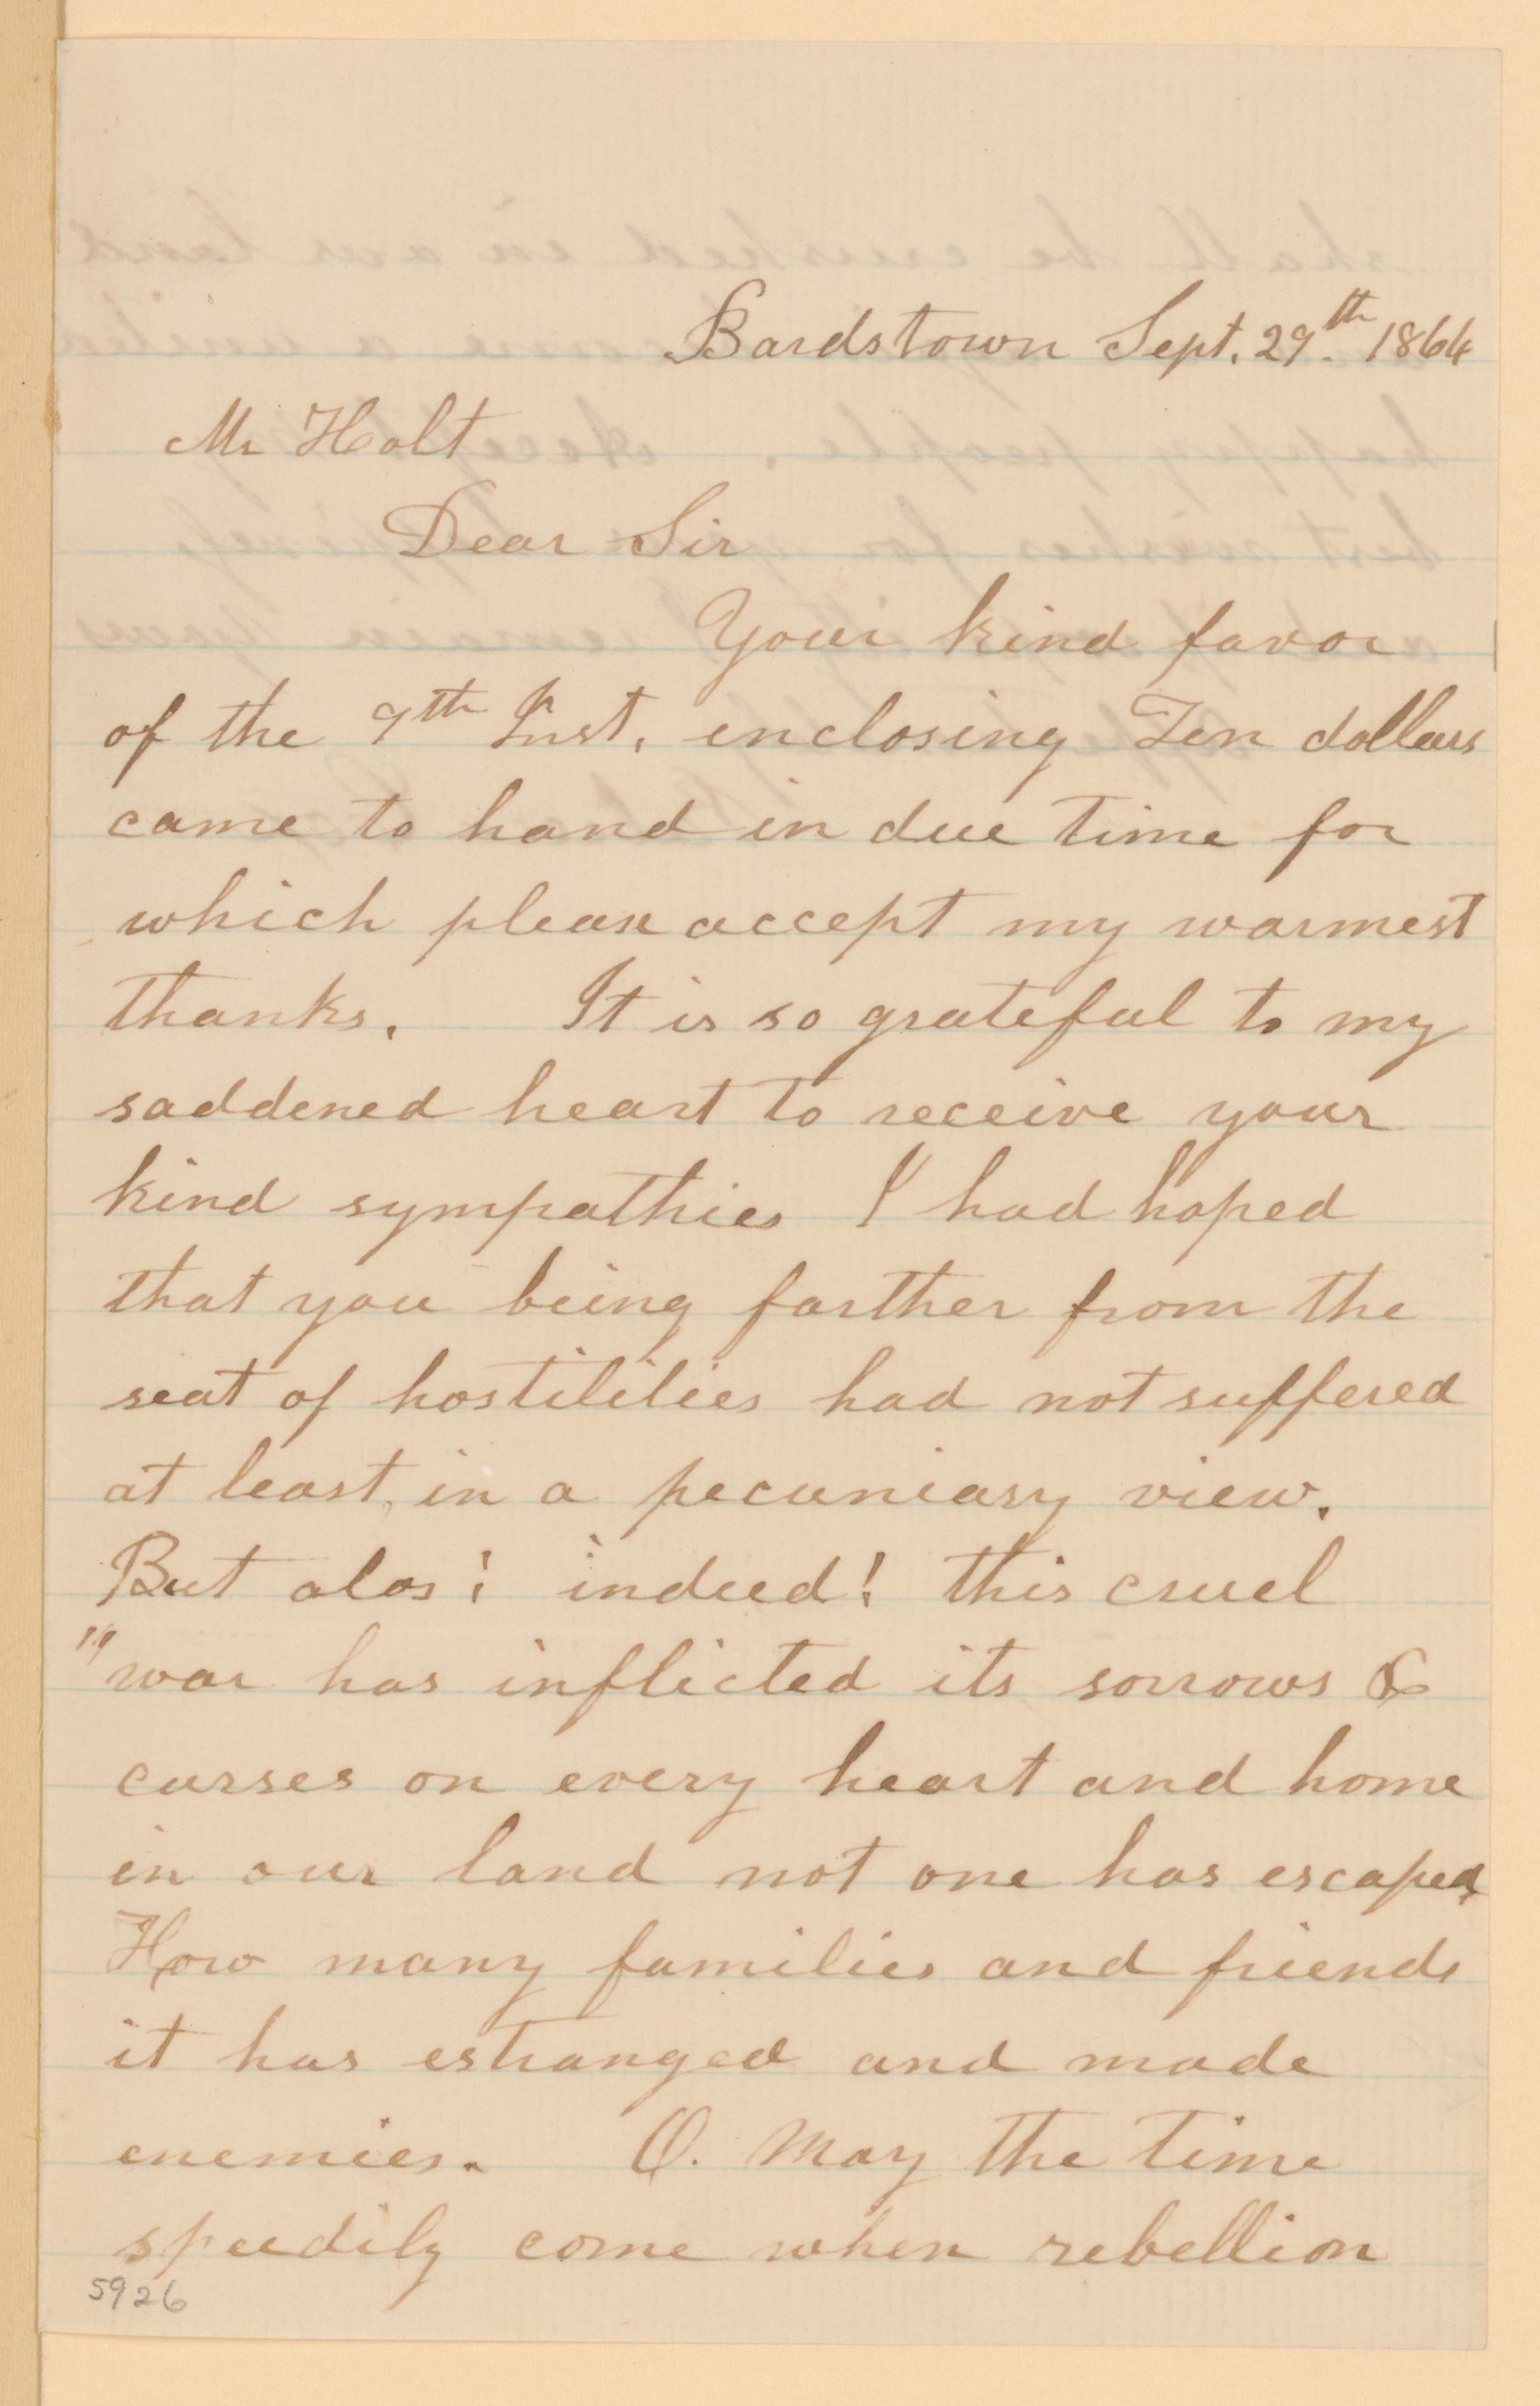 Bardstown Sept. 29th. 1864
Mr Holt
Dear Sir
Your kind favor
of the 9th Inst. enclosing Ten dollars
came to hand in due time for
which please accept my warmest
thanks. It is so grateful to my
saddened heart to receive your
kind sympathies I had hoped
that you being farther from the
seat of hostilities had not suffered
at least, in a pecuniary view.
But alas! indeed! this cruel
"war has inflicted its sorrows &
curses on every heart and home
in our land not one has escaped,
How many families and friends
it has estranged and made
enemies. O. may the time
speedily come when rebellion
5926